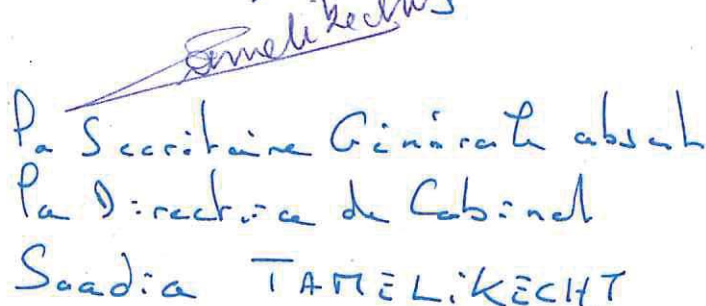 La Secrétaire Générale absente
La Directrice de Cabinet
Saadia TAMELIKECHT